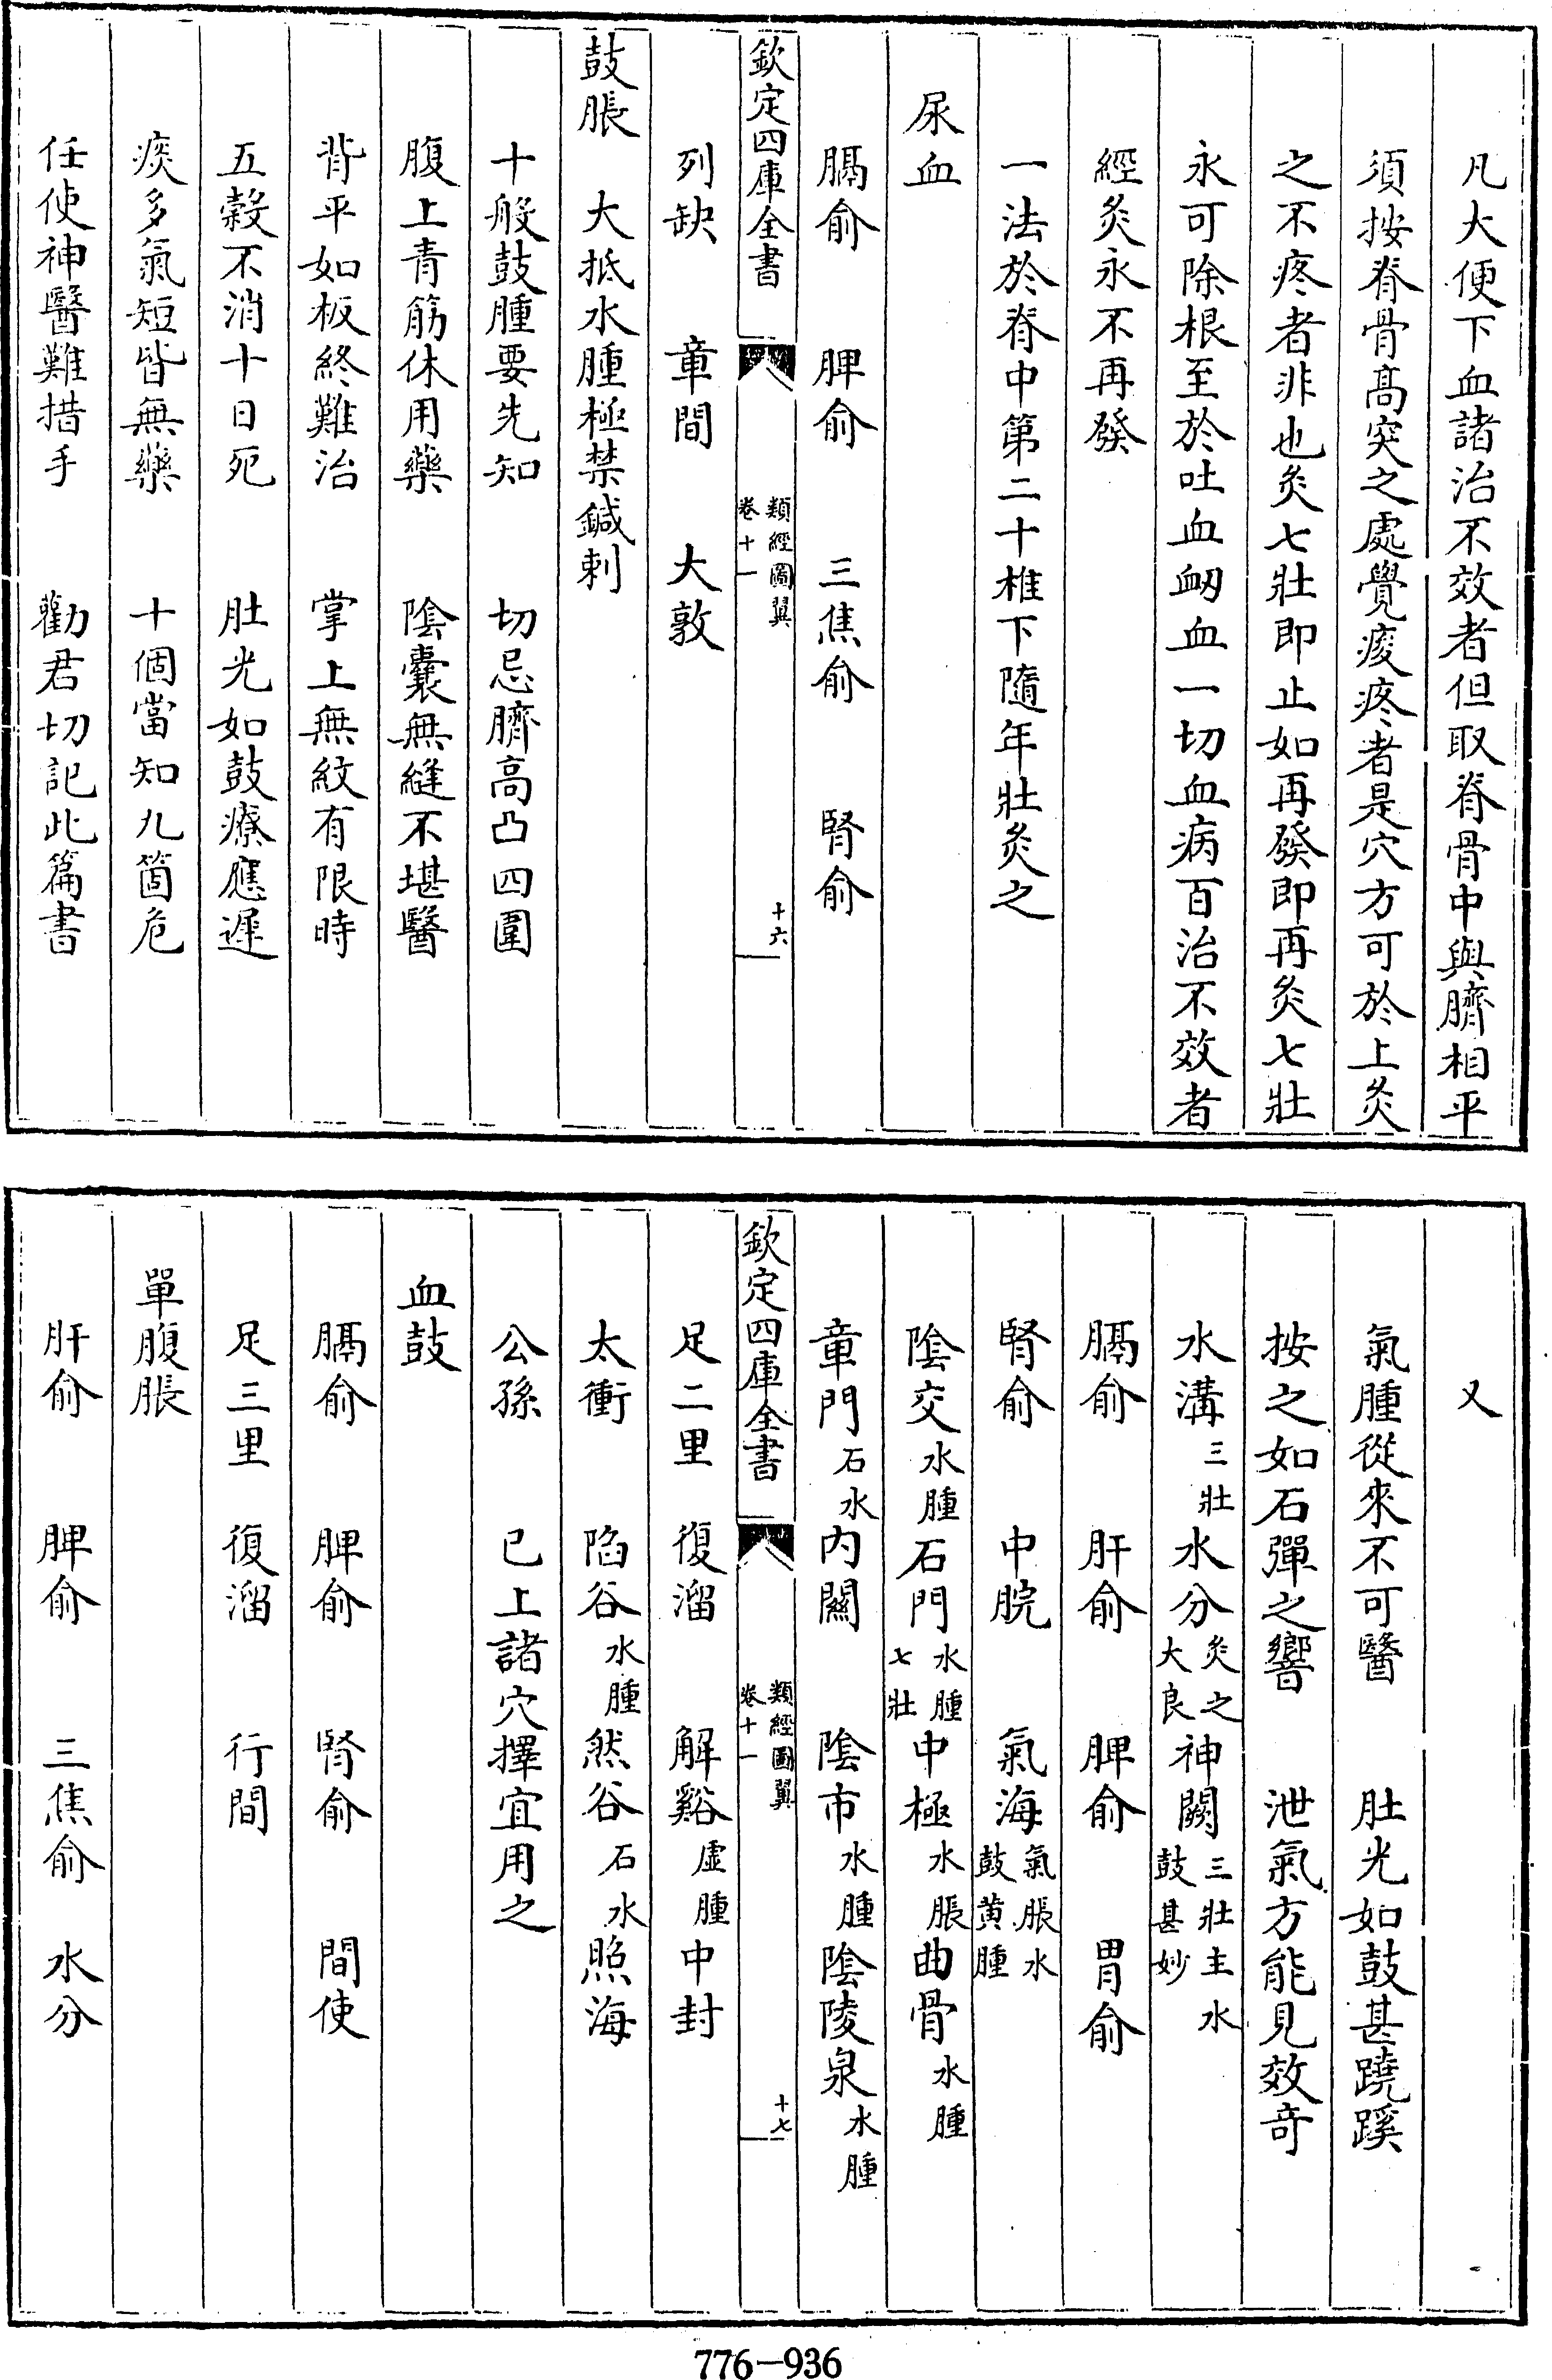 凡大便下血諸治不效者但取脊骨中與臍相平
須按脊骨高突之處覺痠疼者是穴方可於上灸
之不疼者非也灸七壯即止如再發即再灸七壯
永可除根至於吐血衂血一切血病百治不效者
經灸永不再發
一法於脊中第二十椎下隨年壯灸之
尿血
膈俞　脾俞　三焦俞　腎俞
欽定四庫全書　類經圖翼卷十一　十六
列缺　章間　大敦
鼓脹　大抵水腫極禁鍼刺
十般鼓腫要先知　切忌臍高凸四圍
腹上青筋休用藥　陰囊無縫不堪醫
背平如板終難治　掌上無紋有限時
五穀不消十日死　肚光如鼓療應遲
痰多氣短皆無藥　十個當知九箇危
任使神醫難措手　勸君切記此篇書
又
氣腫從來不可醫　肚光如鼓甚蹺蹊
按之如石彈之響　泄氣方能見效奇
水溝三壯水分灸之大良神闕三壯主水鼓甚妙
膈俞　肝俞　脾俞　胃俞
腎俞　中脘　氣海氣脹水鼓黄腫
陰交水腫石門水腫七壯中極水脹曲骨水腫
章門石水内關　陰市水腫陰陵泉水腫
欽定四庫全書　類經圖翼卷十一　十七
足二里　復溜　解谿虛腫中封
太衝　陷谷水腫然谷石水照海
公孫　已上諸穴擇宜用之
血鼓
膈俞　脾俞　腎俞　間使
足三里　復溜　行間
單腹脹
肝俞　脾俞　三焦俞　水分
776-936